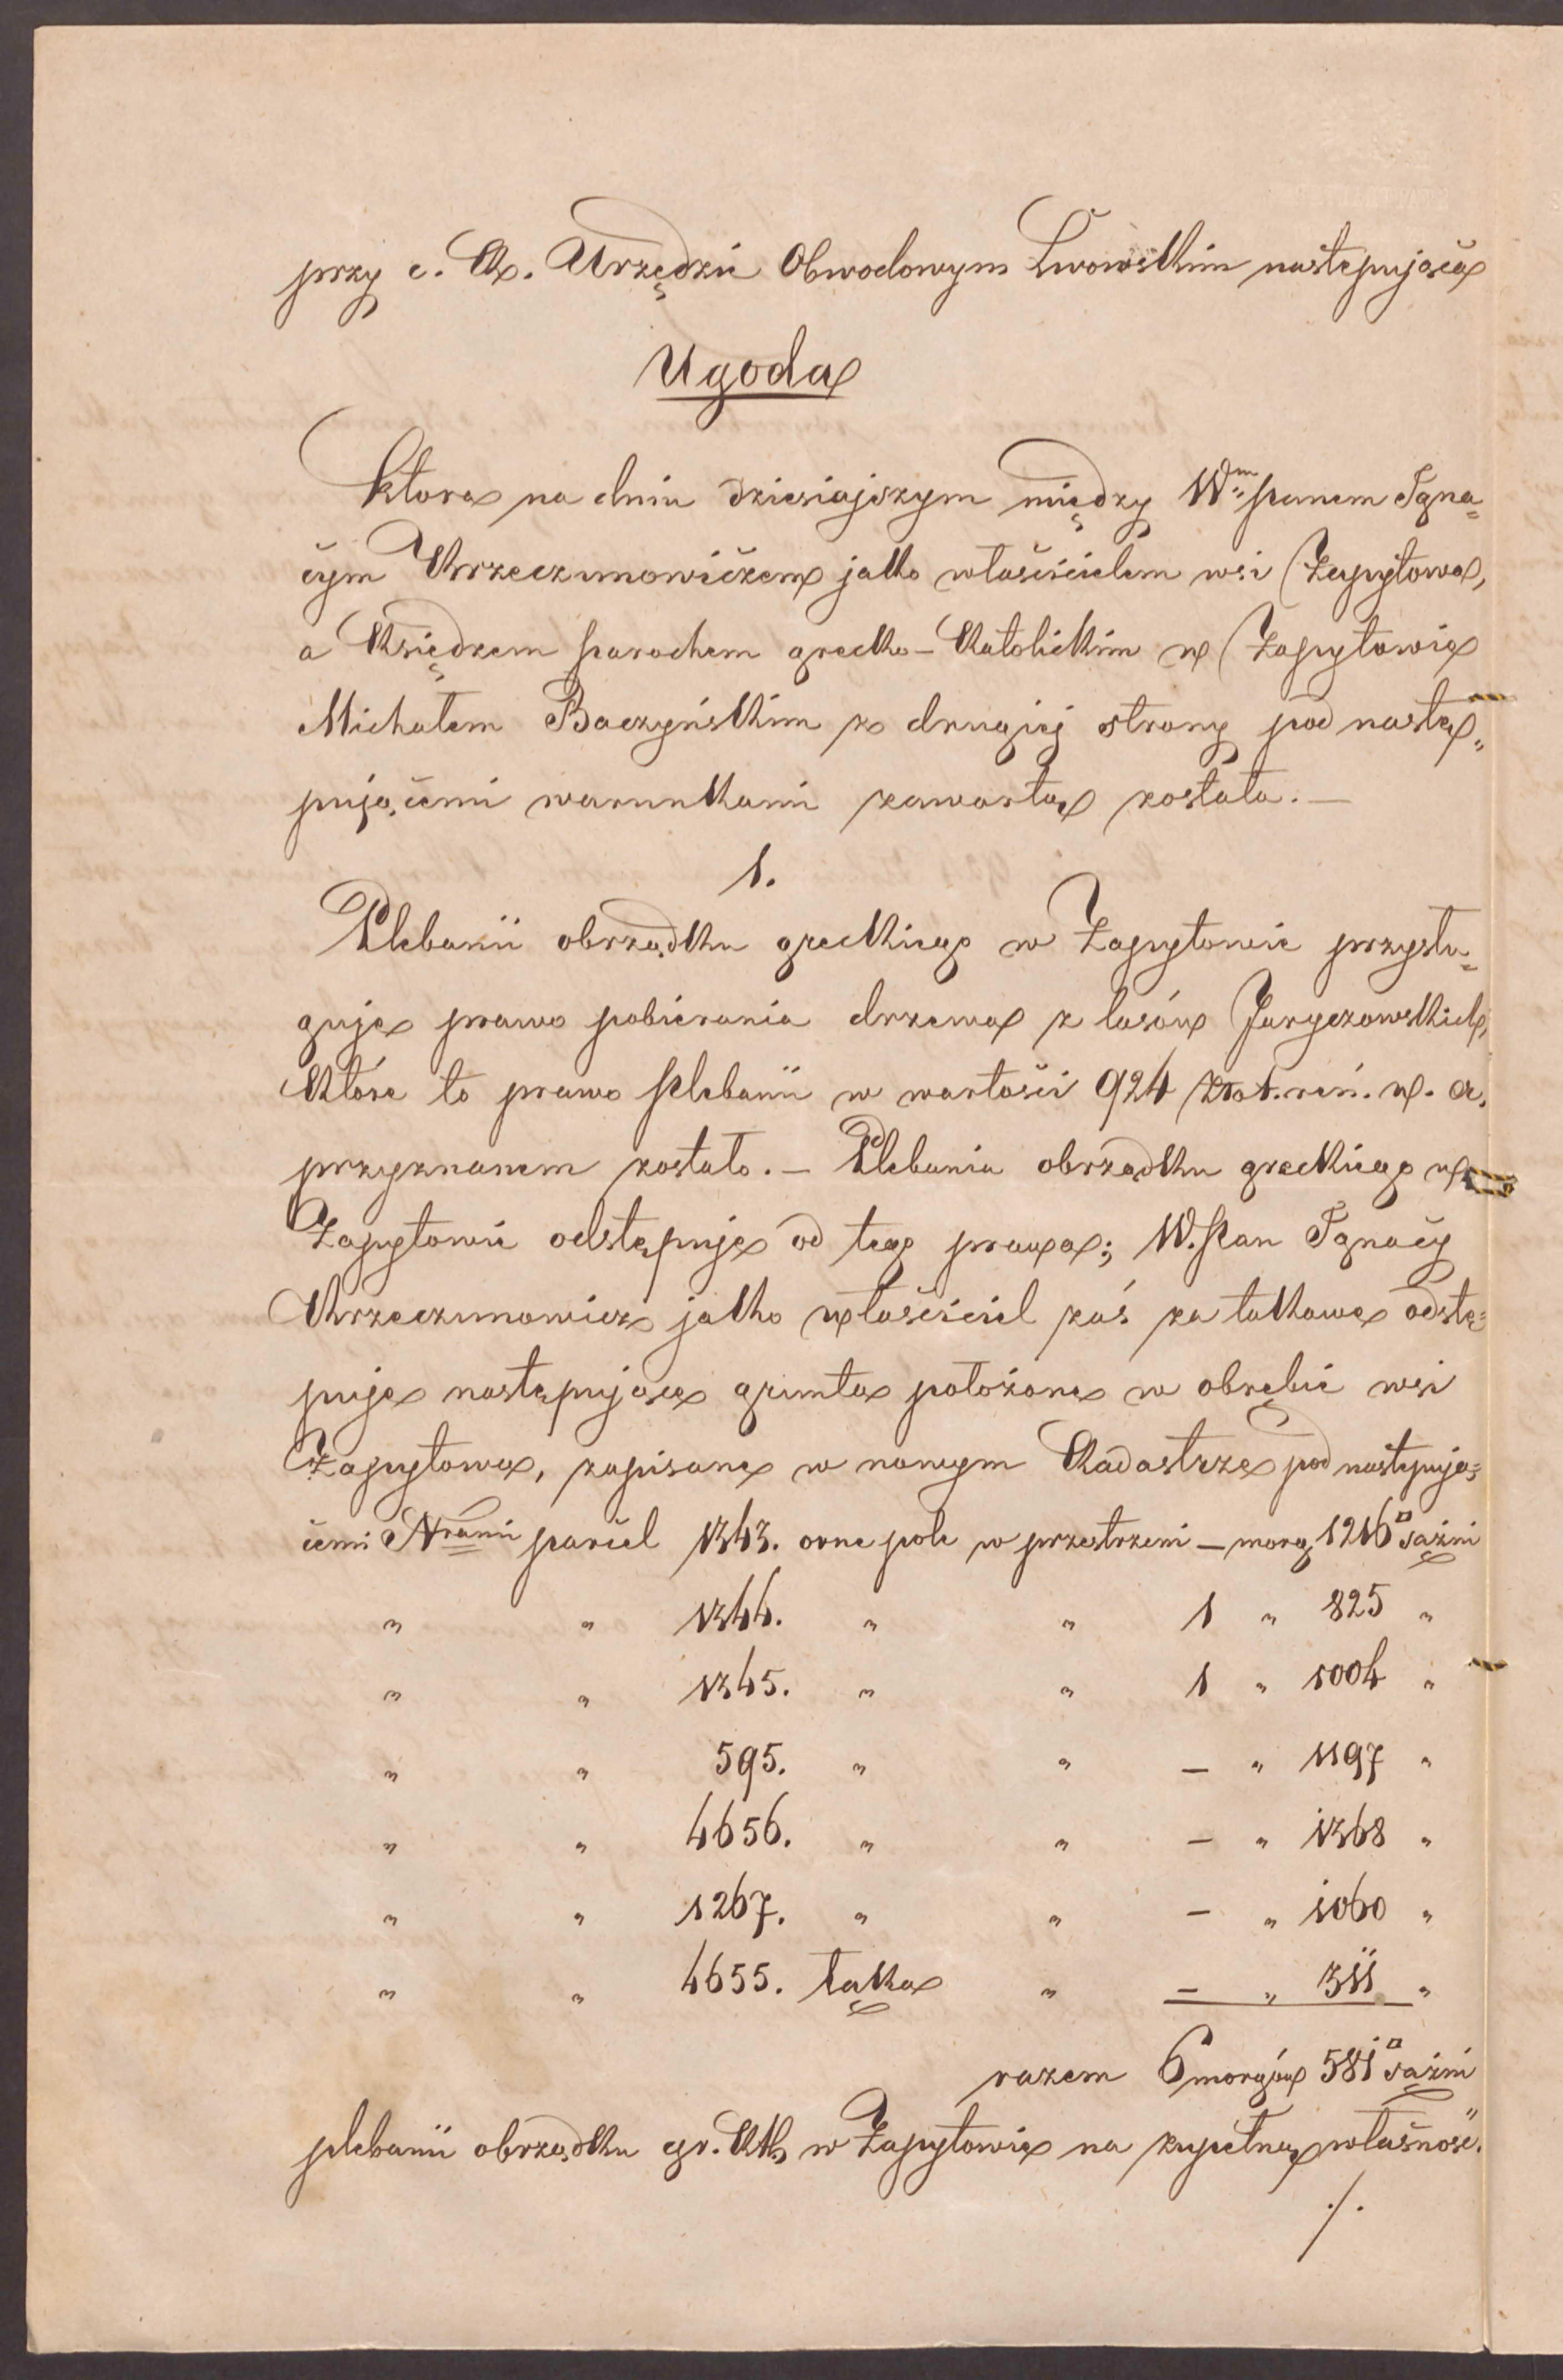 przy c. k. Urzędzie Obwodowym Lwowskim następująca
Ugoda
która na dniu dzisiajszym między Wm panem Igna=
cym Krzeczunowiczem jako właścicielem wsi Zapytowa,
a Księdzem parochem grecko-katolickim w Zapytowie
Michałem Baczyńskim z drugiej strony pod nastę„
pującemi warunkami zawarta została. —
1.
Plebanii obrządku greckiego w Zapytowie przysłu=
guje prawo pobierania drzewa z lasów Jaryczowskich,
które to prawo plebanii w wartości 924 złot. reń. w. a.
przyznanem zostało. — Plebania obrządku greckiego w
Zapytowie odstępuje od tego prawa; W. pan Ignacy
Krzeczunowicz jako właściciel zaś za takowe odstę=
puje następujące grunta położone w obrębie wsi
Zapytowa, zapisane w nowym Kadastrze pod następują=
cemi Nrami parcel 1343. orne pole w przestrzeni — morg 1216 □ sążni
„ „ 1344. „ „ 1 „ 825 „
„ „ 1345. „ „ 1 „ 1004 „
„ „ 595. „ „ — „ 1197 „
„ „ 4656. „ „ — „ 1368 „
„ „ 1267. „ „ — „ 1060 „
„ „ 4655. łąka „ — „ 311 „
razem 6 morgów 581 □ sążni
plebanii obrządku gr. kth w Zapytowie na zupełną własność.
./.